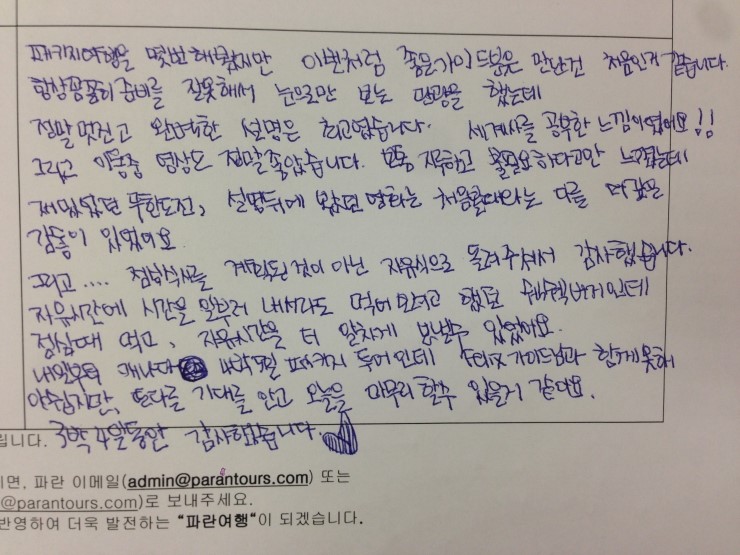 패키지여행을 몇번해봤지만 이번처럼 좋은가이드분은 만난건 처음인거 같습니다.
항상꼼꼼히 준비를 잘못해서 눈으로만 보는 관광을 했는데
정말 멋진고 완벽한 설명은 최고였습니다. 세계사를 공부한 느낌이였어요!!
그리고 이동중 영상도 정말좋았습니다. 보통 지루하고 불필요하다고만 느꼈는데
재밌었던 무한도전, 설명뒤에 봤던영화는 처음볼때와는 다른 색다른
감동이 있었어요.
그리고.... 점심식사를 계획된것이 아닌 자유식으로 돌려주셔서 감사했습니다.
자유시간에 시간을 일부러 내서라도 먹어보려고 했던 쉑쉑버거인데
점심때 먹고, 자유시간을 더 알차게 보낼수 있었어요.
내일부터 캐나다 4박5일 패키지 투어인데 Felix가이드님과 함께못해
아쉽지만, 또다른 기대를 안고 오늘을 마무리 할수 있을거 같아요.
3박4일동안 감사했습니다.
립니다.
시면, 파란 이메일(admin@parantours.com) 또는
@parantours.com)로 보내주세요.
반영하여 더욱 발전하는 "파란여행"이 되겠습니다.